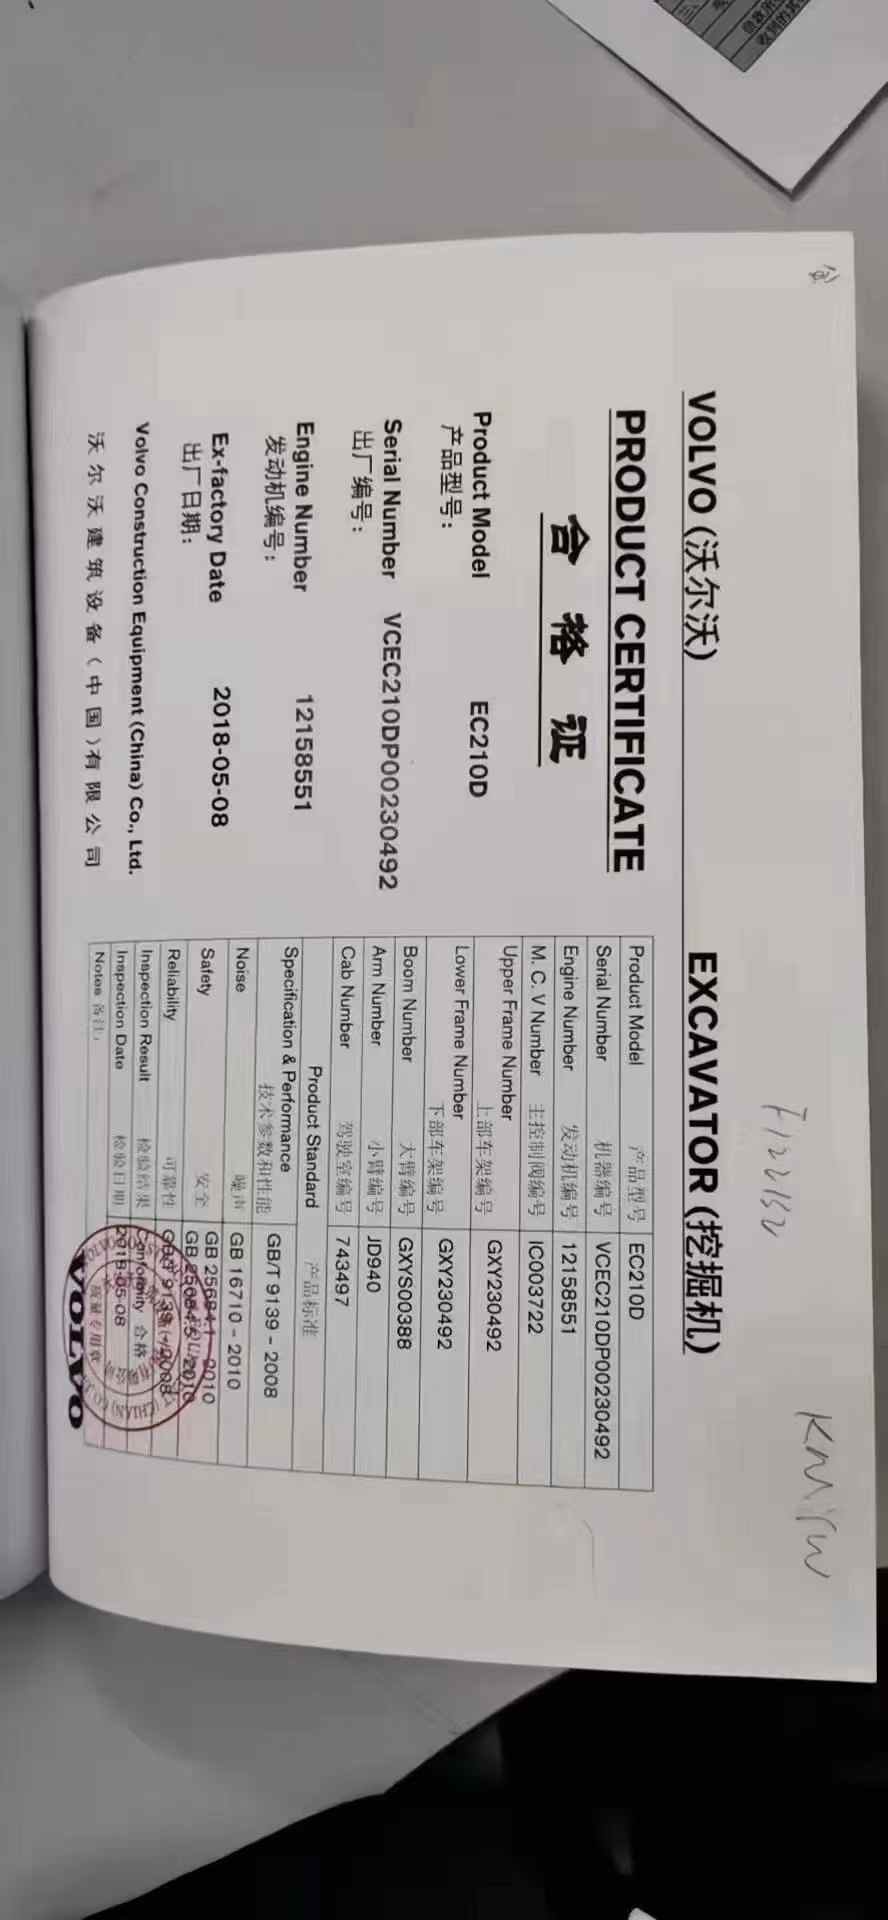 VOLVO (沃尔沃) EXCAVATOR (挖掘机)
PRODUCT CERTIFICATE
合格证
Product Model EC210D
产品型号：
Serial Number VCEC210DP00230492
出厂编号：
Engine Number 12158551
发动机编号：
Ex-factory Date 2018-05-08
出厂日期：
Volvo Construction Equipment (China) Co., Ltd.
沃尔沃建筑设备（中国）有限公司
Product Model 产品型号 EC210D
Serial Number 机器编号 VCEC210DP00230492
Engine Number 发动机编号 12158551
M. C. V Number 主控制阀编号 IC003722
Upper Frame Number 上部车架编号 GXY230492
Lower Frame Number 下部车架编号 GXY230492
Boom Number 大臂编号 GXYS00388
Arm Number 小臂编号 JD940
Cab Number 驾驶室编号 743497
Product Standard 产品标准
Specification & Performance 技术参数和性能 GB/T 9139 - 2008
Noise 噪声 GB 16710 - 2010
Safety 安全 GB 25684.1-2010
GB 25684.5-2010
Reliability 可靠性 GB/T 9139-2008
Inspection Result 检验结果 Conformity 合格
Inspection Date 检验日期 2018-05-08
Notes 备注：
VOLVO
质量专用章